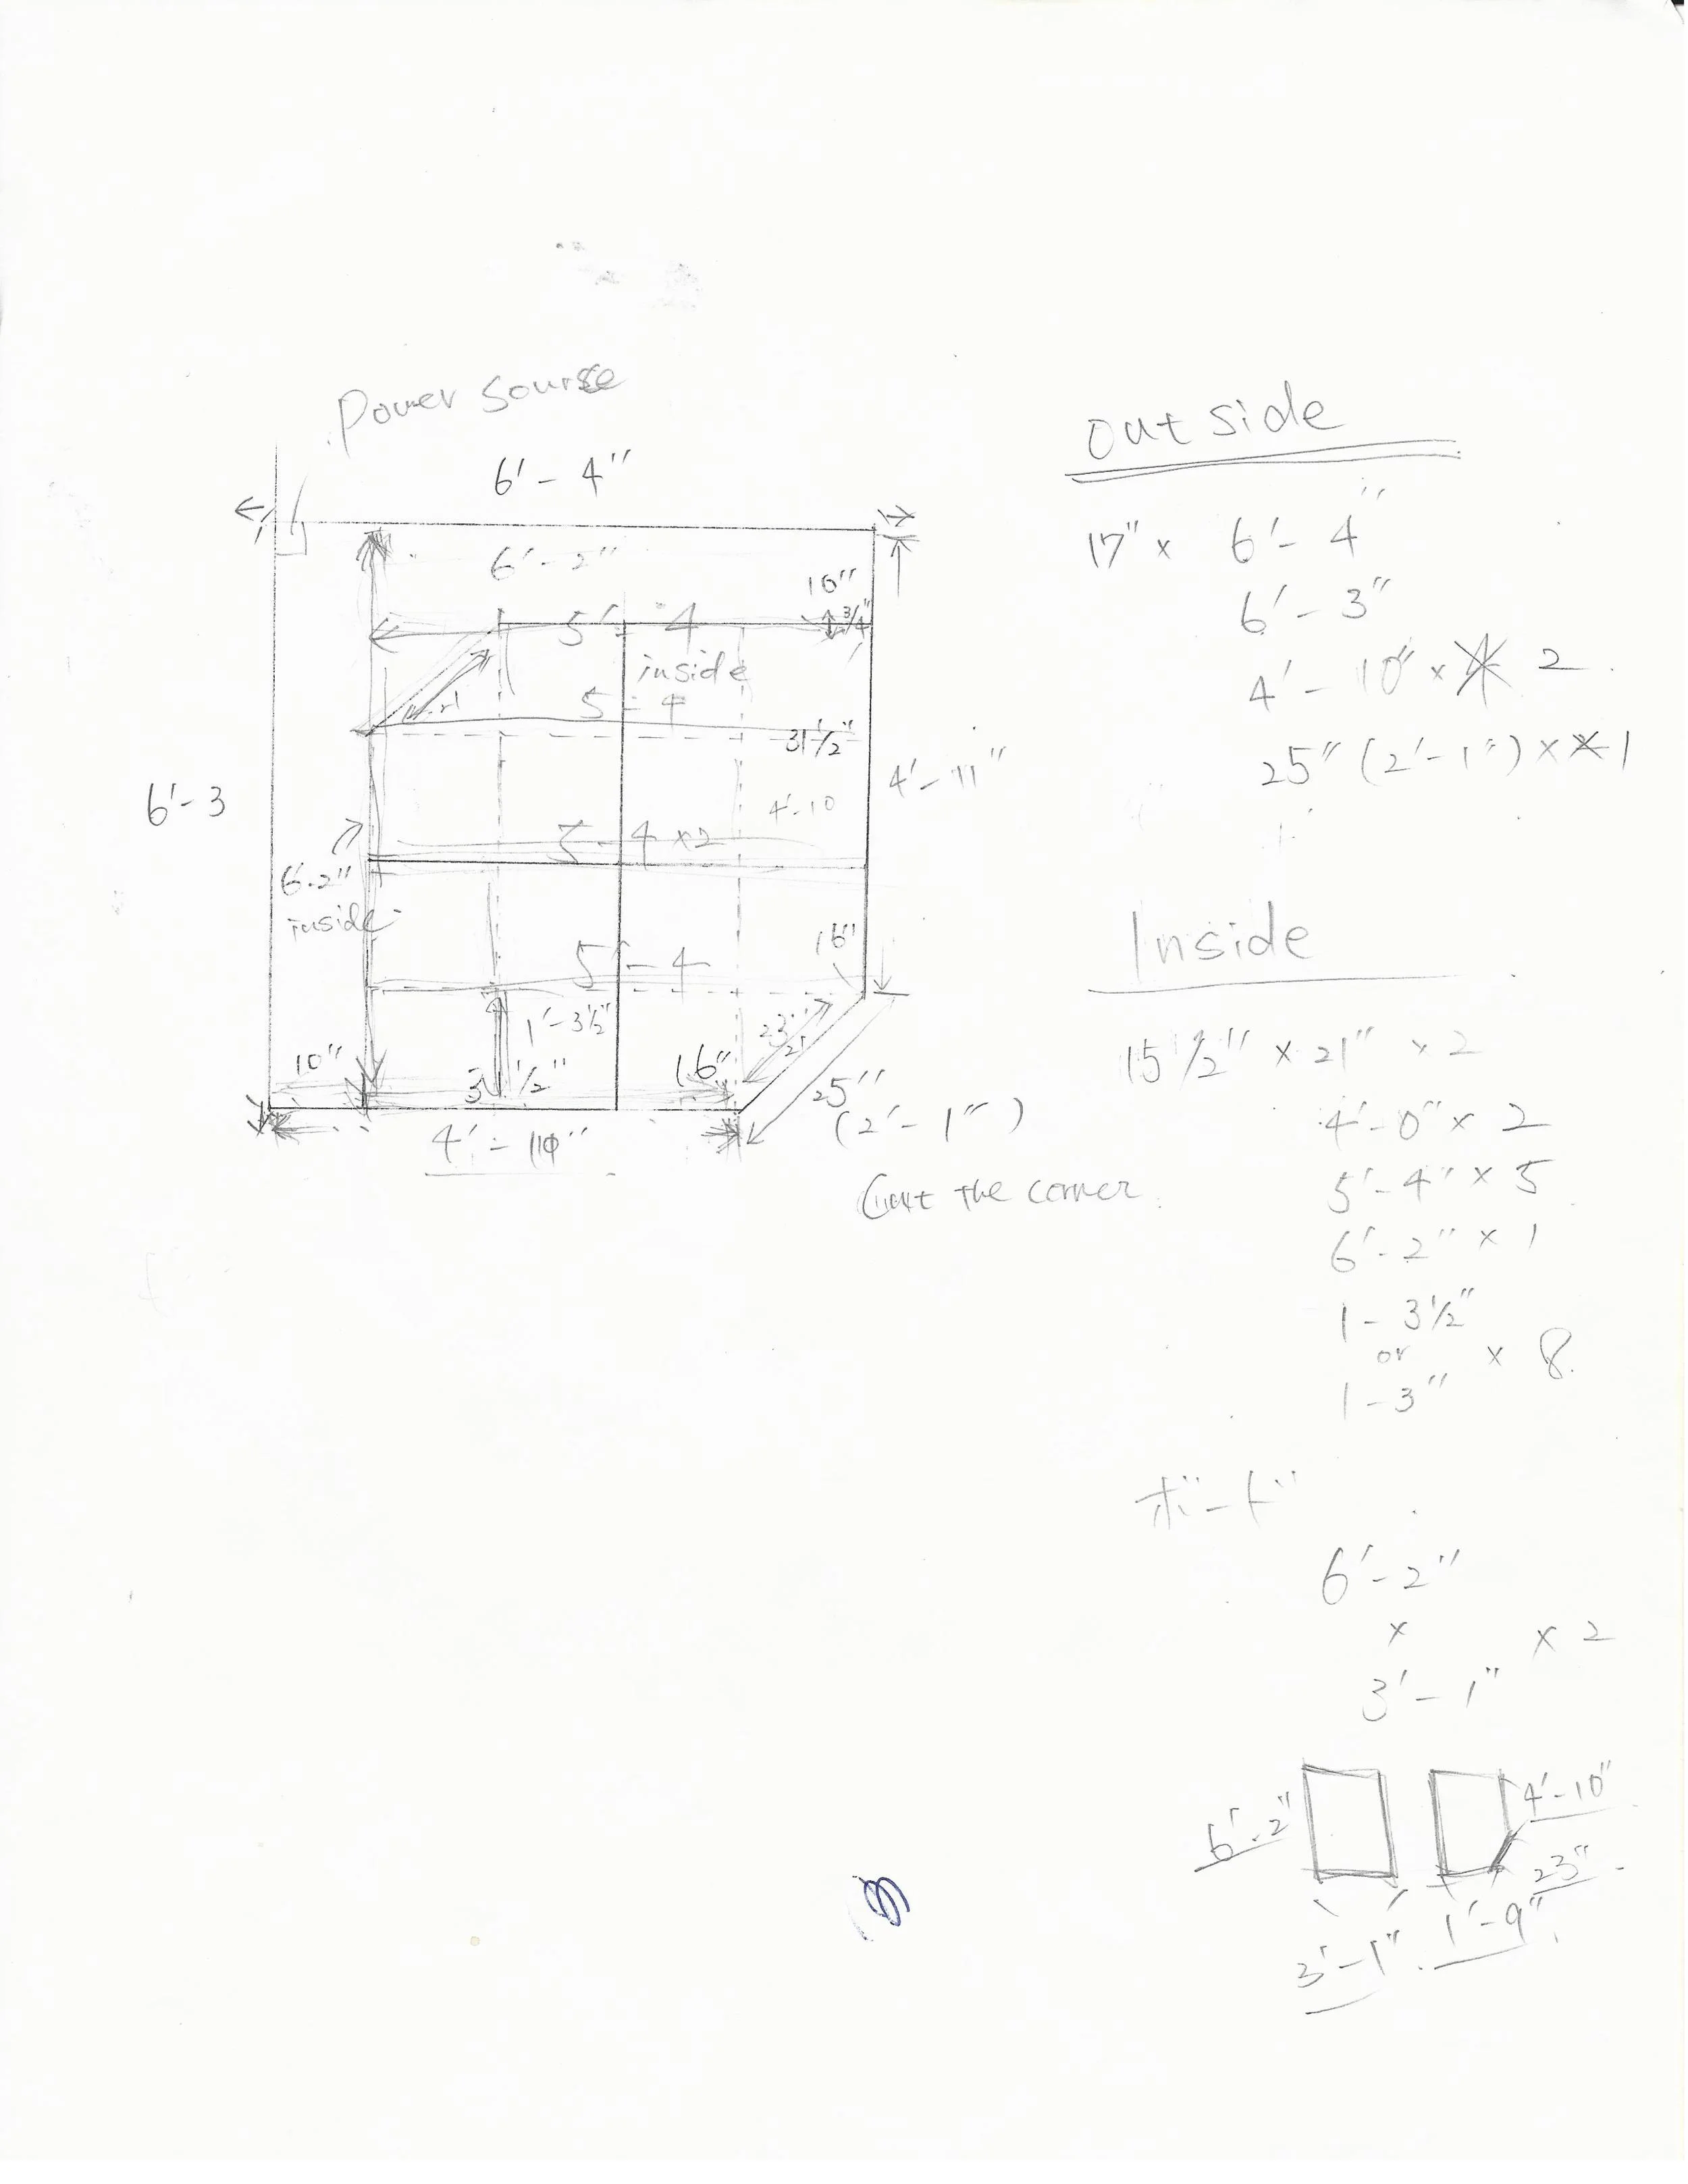 Power Sourse
6'-4"
6'-2"
10"
3/4"
5'-4
inside
5-4
31 1/2"
4'-11"
6'-3
4'-10
5-4 ×2
6'-2"
inside
16"
5'-4
1'-3½"
23"
21
10"
3 1/2"
16"
25"
(2'-1")
4'-10"
Cut the corner
Out side
17" × 6'-4"
6'-3"
4'-10" × 2
25" (2'-1") × 1
Inside
15 1/2" × 21" × 2
4'-0" × 2
5'-4" × 5
6'-2" × 1
1-3½"
or × 8
1-3"
ボード
6'-2"
× × 2
3'-1"
4'-10"
6'-2"
23"
1'-9"
3'-1"